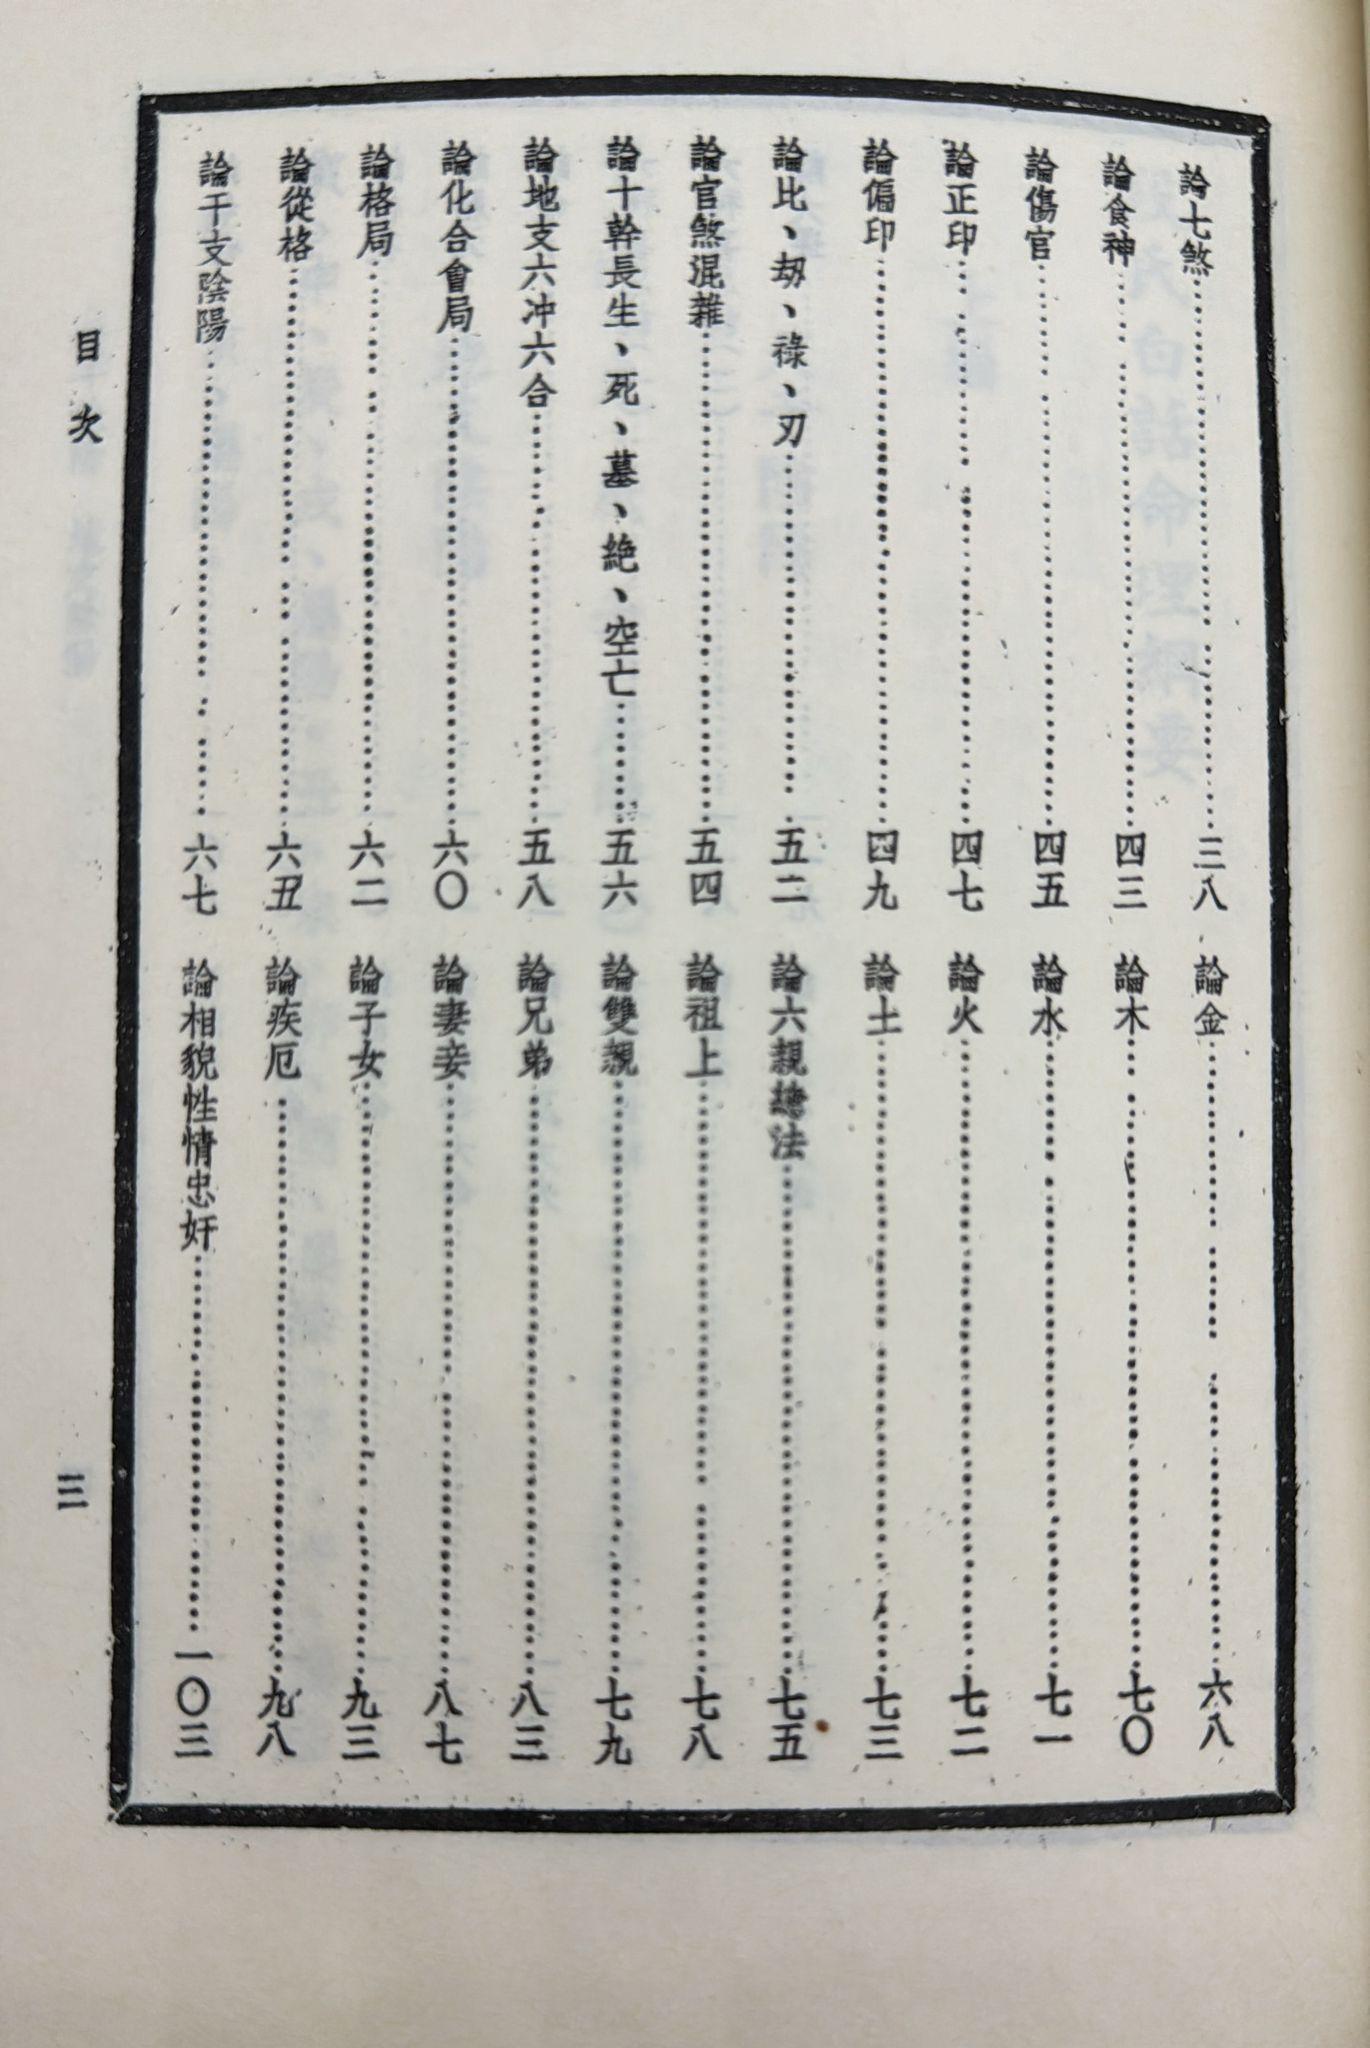 論七煞……三八
論食神……四三
論傷官……四五
論正印……四七
論偏印……四九
論比、刼、祿、刃……五二
論官煞混雜……五四
論十幹長生、死、墓、絶、空亡……五六
論地支六冲六合……五八
論化合會局……六〇
論格局……六二
論從格……六丑
論干支陰陽……六七
論金……六八
論木……七〇
論水……七一
論火……七二
論土……七三
論六親總法……七五
論祖上……七八
論雙親……七九
論兄弟……八三
論妻妾……八七
論子女……九三
論疾厄……九八
論相貌性情忠奸……一〇三
目次
三